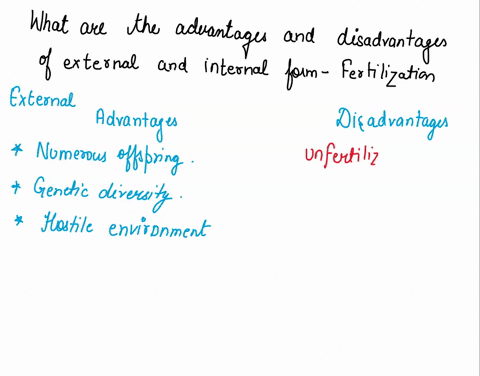 What are the advantages and disadvantages
of external and internal form - Fertilization
External
Advantages
Disadvantages
* Numerous offspring.
unfertiliz
* Genetic diversity.
* Hostile environment